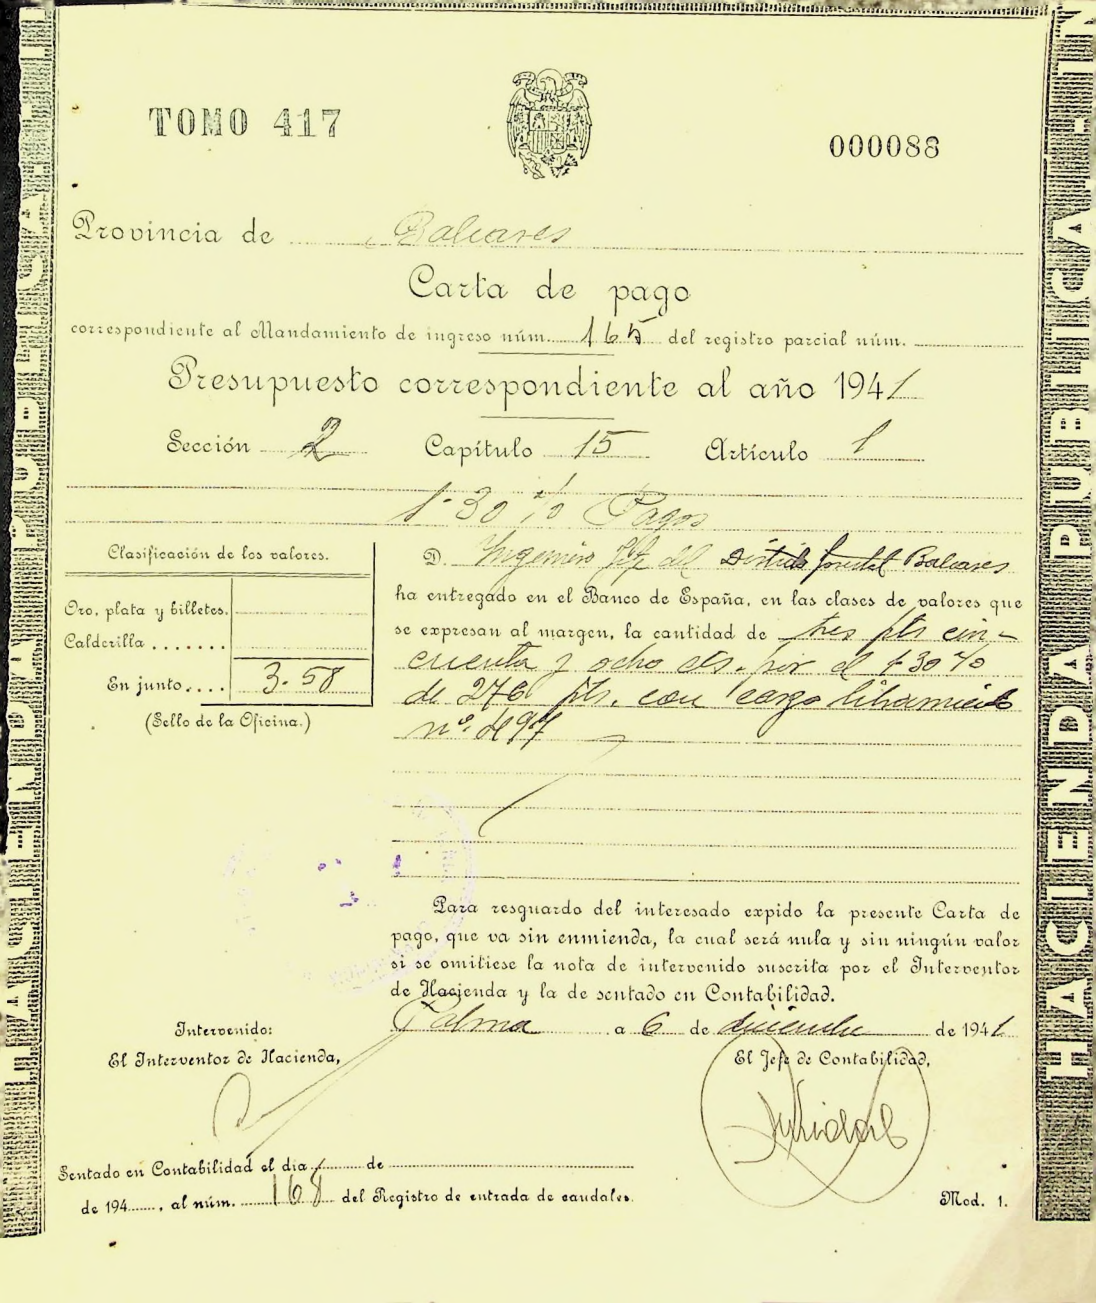 HACIENDA PUBLICA
TOMO 417
000088
Provincia de Baleares
Carta de pago
correspondiente al Mandamiento de ingreso núm. 165 del registro parcial núm.
Presupuesto correspondiente al año 1941
Sección 2 Capítulo 15 Artículo 1
1·30 % Pagos
Clasificación de los valores.
Oro, plata y billetes.
Calderilla .......
En junto.... 3.58
(Sello de la Oficina.)
D. Ingeniero Jefe del Distrito forestal Baleares
ha entregado en el Banco de España, en las clases de valores que
se expresan al margen, la cantidad de tres pts cin-
cuenta y ocho cts. por el 1'30 %
de 276 pts. con cargo libramiento
nº.
Para resguardo del interesado expido la presente Carta de
pago, que va sin enmienda, la cual será nula y sin ningún valor
si se omitiese la nota de intervenido suscrita por el Interventor
de Hacienda y la de sentado en Contabilidad.
Palma a 6 de diciembre de 1941
Intervenido:
El Interventor de Hacienda,
El Jefe de Contabilidad,
Sentado en Contabilidad el día de
de 194....., al núm. 168 del Registro de entrada de caudales.
Mod. 1.
HACIENDA PUBLICA-IN